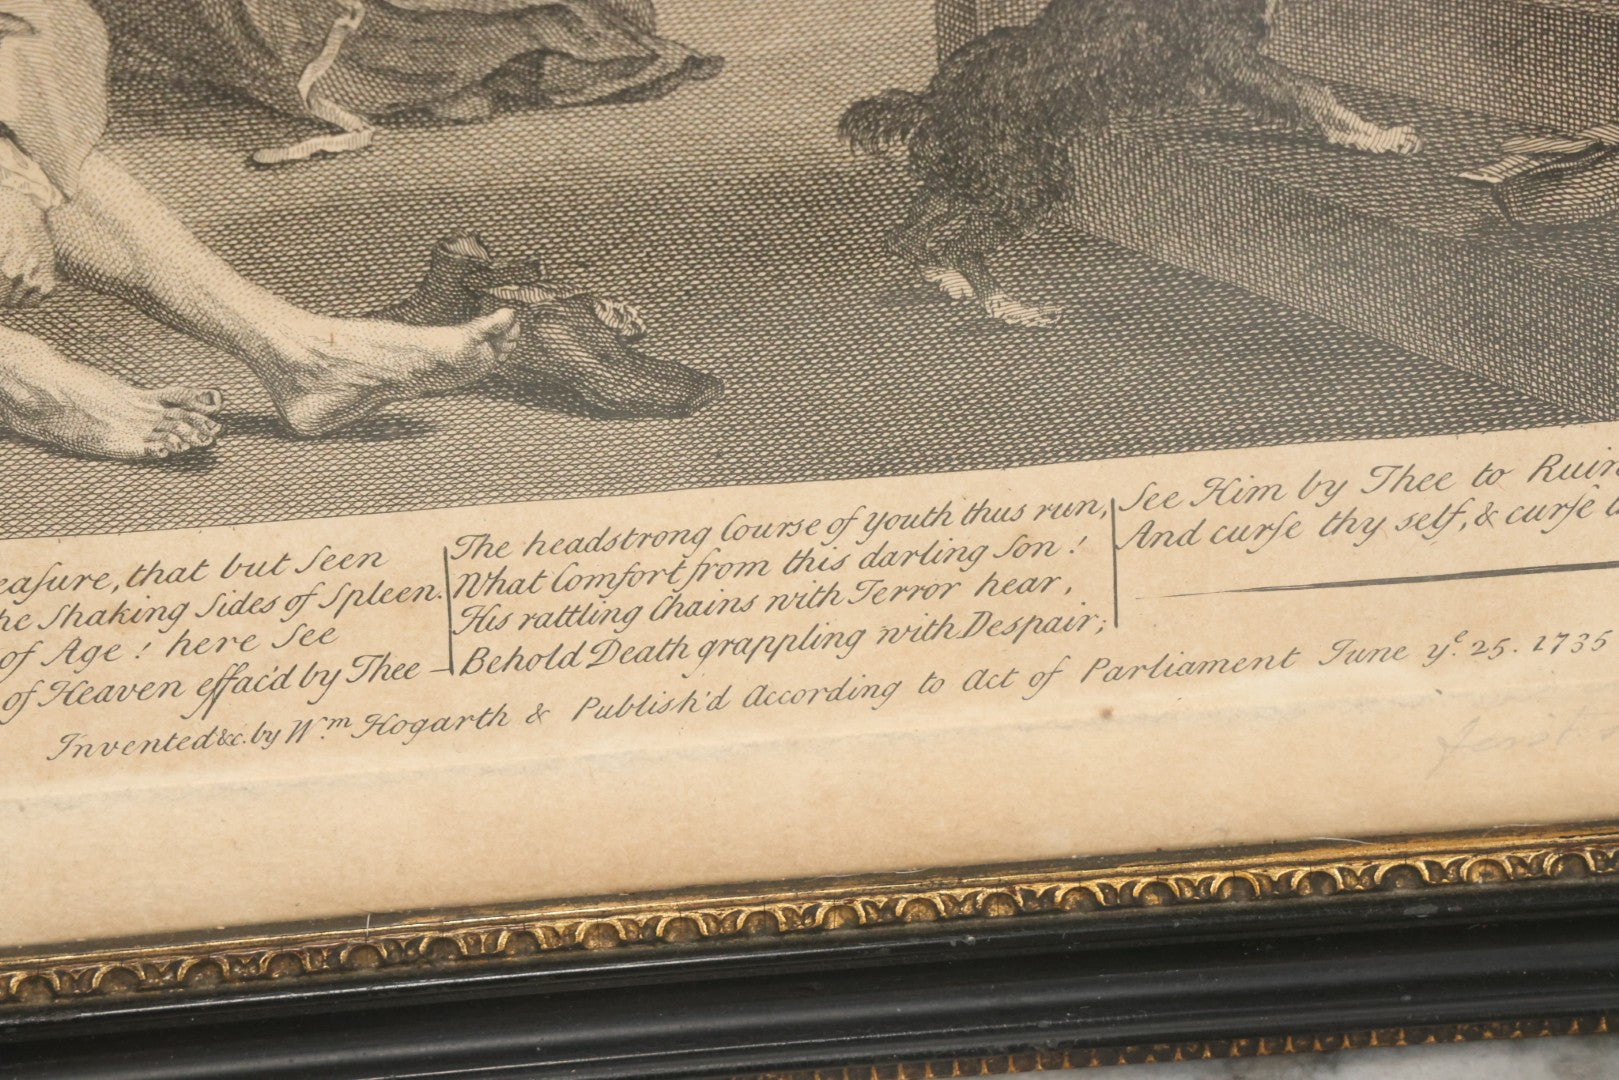 that but Seen
Shaking Sides of Spleen.
of Age! here See
of Heaven effac'd by Thee —
The headstrong Course of Youth thus run,
What Comfort from this darling Son!
His rattling Chains with Terror hear,
Behold Death grappling with Despair;
See Him by Thee to
And curſe thy self, & curſe
Invented &c. by Wm. Hogarth & Publish'd According to Act of Parliament June ye. 25. 1735